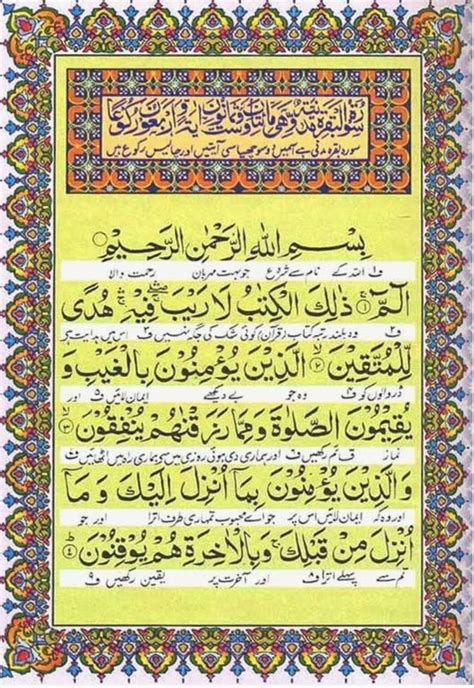 سورة البقرة مدنية وهى مائتان وست وثمانون اية واربعون ركوعا
سورہ بقرہ مدنی ہے اسمیں دو سو چھیاسی آیتیں اور چالیس رکوع ہیں
بِسْمِ اللهِ الرَّحْمٰنِ الرَّحِيْمِ
ف۱ اللہ کے نام سے شروع جو بہت مہربان رحمت والا
الٓمّٓ ۚ ذٰلِكَ الْكِتٰبُ لَا رَيْبَ ۛ فِيْهِ ۛ هُدًى
ف۲ وہ بلند رتبہ کتاب (قرآن) کوئی شک کی جگہ نہیں ف۳ اس میں ہدایت ہے
لِّلْمُتَّقِيْنَ ۙ۲ الَّذِيْنَ يُؤْمِنُوْنَ بِالْغَيْبِ وَ
ڈر والوں کو ف۴ وہ جو بے دیکھے ایمان لائیں ف۵ اور
يُقِيْمُوْنَ الصَّلٰوةَ وَمِمَّا رَزَقْنٰهُمْ يُنْفِقُوْنَ ۙ۳
نماز قائم رکھیں ف۶ اور ہماری دی ہوئی روزی میں سے ہماری راہ میں اٹھائیں ف۷
وَالَّذِيْنَ يُؤْمِنُوْنَ بِمَآ اُنْزِلَ اِلَيْكَ وَمَآ
اور وہ کہ ایمان لائیں اس پر جو اے محبوب تمہاری طرف اترا اور جو
اُنْزِلَ مِنْ قَبْلِكَ ۚ وَبِالْاٰخِرَةِ هُمْ يُوْقِنُوْنَ ۴
تم سے پہلے اترا ف۸ اور آخرت پر یقین رکھیں ف۹